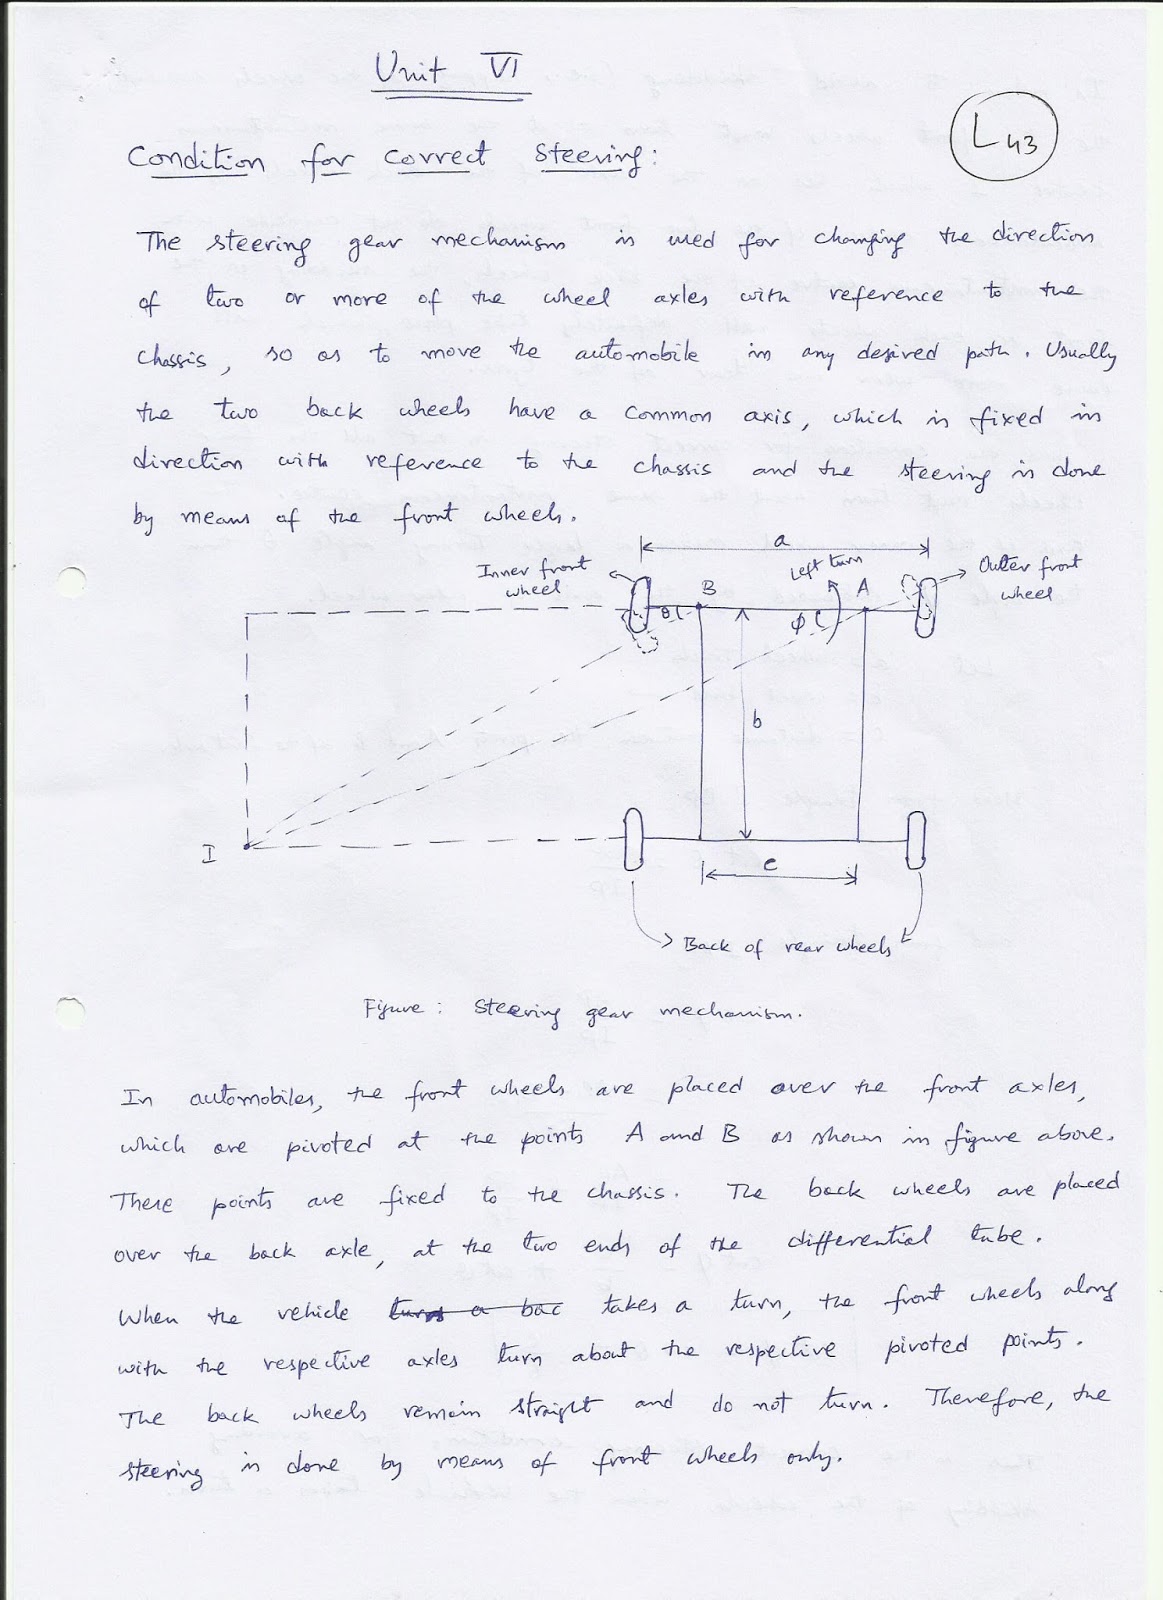 Unit VI
L43
Condition for correct steering:
The steering gear mechanism is used for changing the direction
of two or more of the wheel axles with reference to the
chassis, so as to move the automobile in any desired path. Usually
the two back wheels have a common axis, which is fixed in
direction with reference to the chassis and the steering is done
by means of the front wheels.
a
Inner front
wheel
B
Left turn
A
Outer front
wheel
θ
φ
b
I
c
Back of rear wheels
Figure: Steering gear mechanism.
In automobiles, the front wheels are placed over the front axles,
which are pivoted at the points A and B as shown in figure above.
These points are fixed to the chassis. The back wheels are placed
over the back axle, at the two ends of the differential tube.
When the vehicle turns a bac takes a turn, the front wheels along
with the respective axles turn about the respective pivoted points.
The back wheels remain straight and do not turn. Therefore, the
steering is done by means of front wheels only.